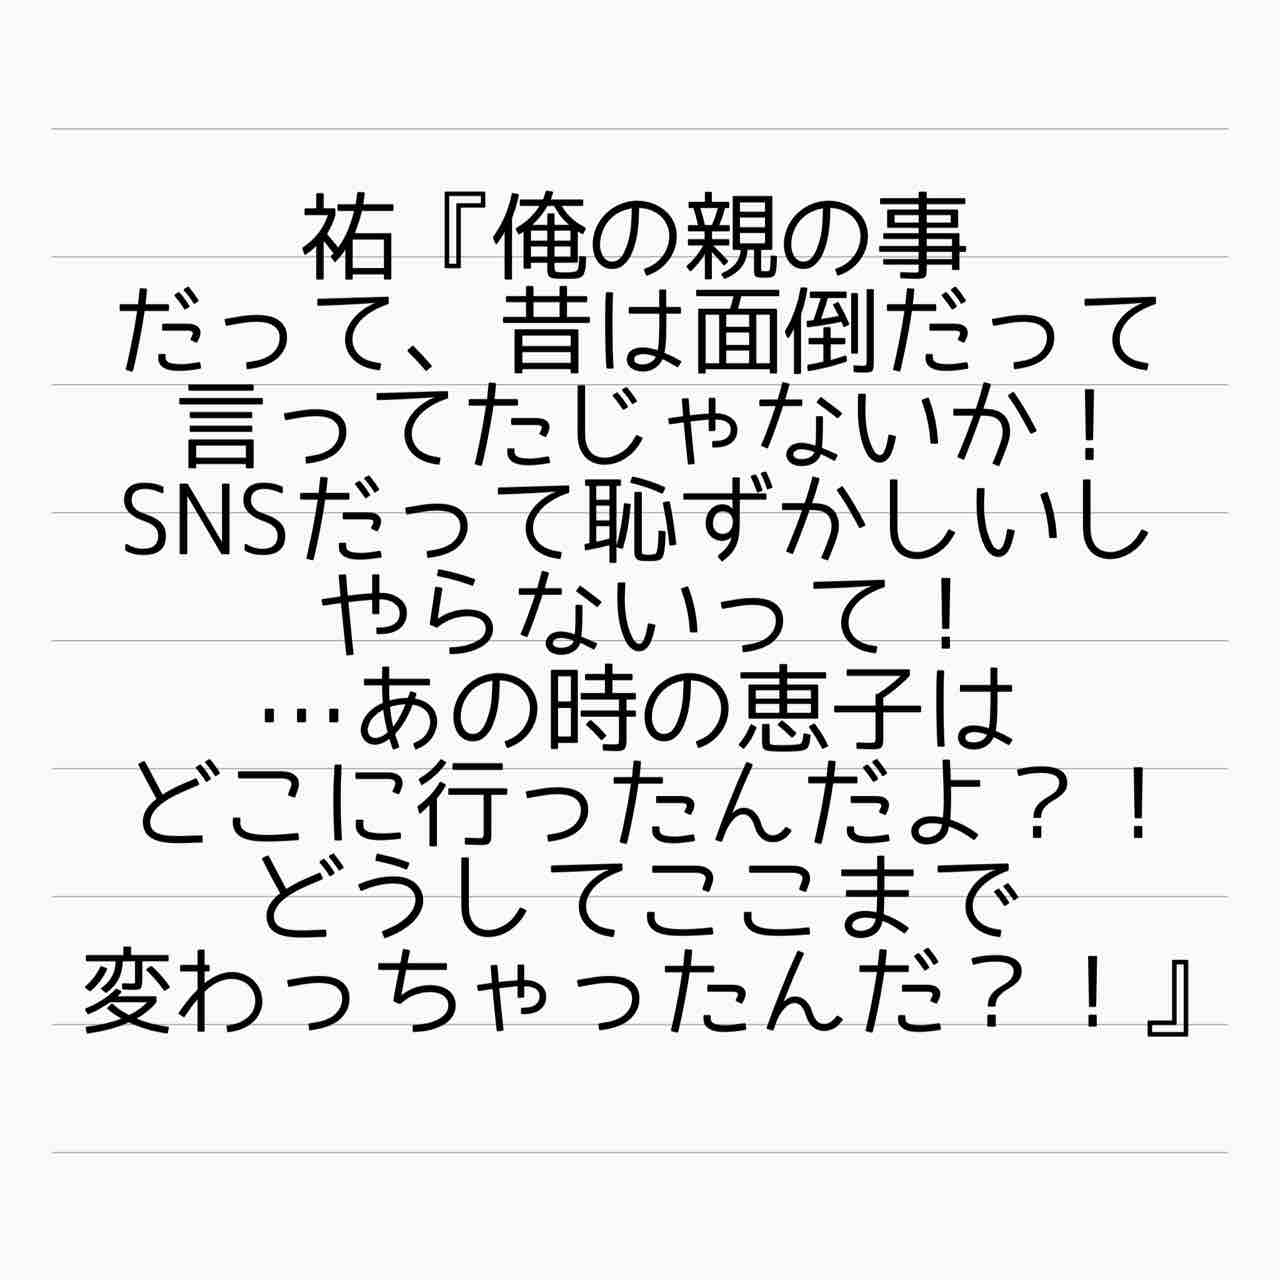 祐『俺の親の事
だって、昔は面倒だって
言ってたじゃないか！
SNSだって恥ずかしいし
やらないって！
…あの時の恵子は
どこに行ったんだよ？！
どうしてここまで
変わっちゃったんだ？！』